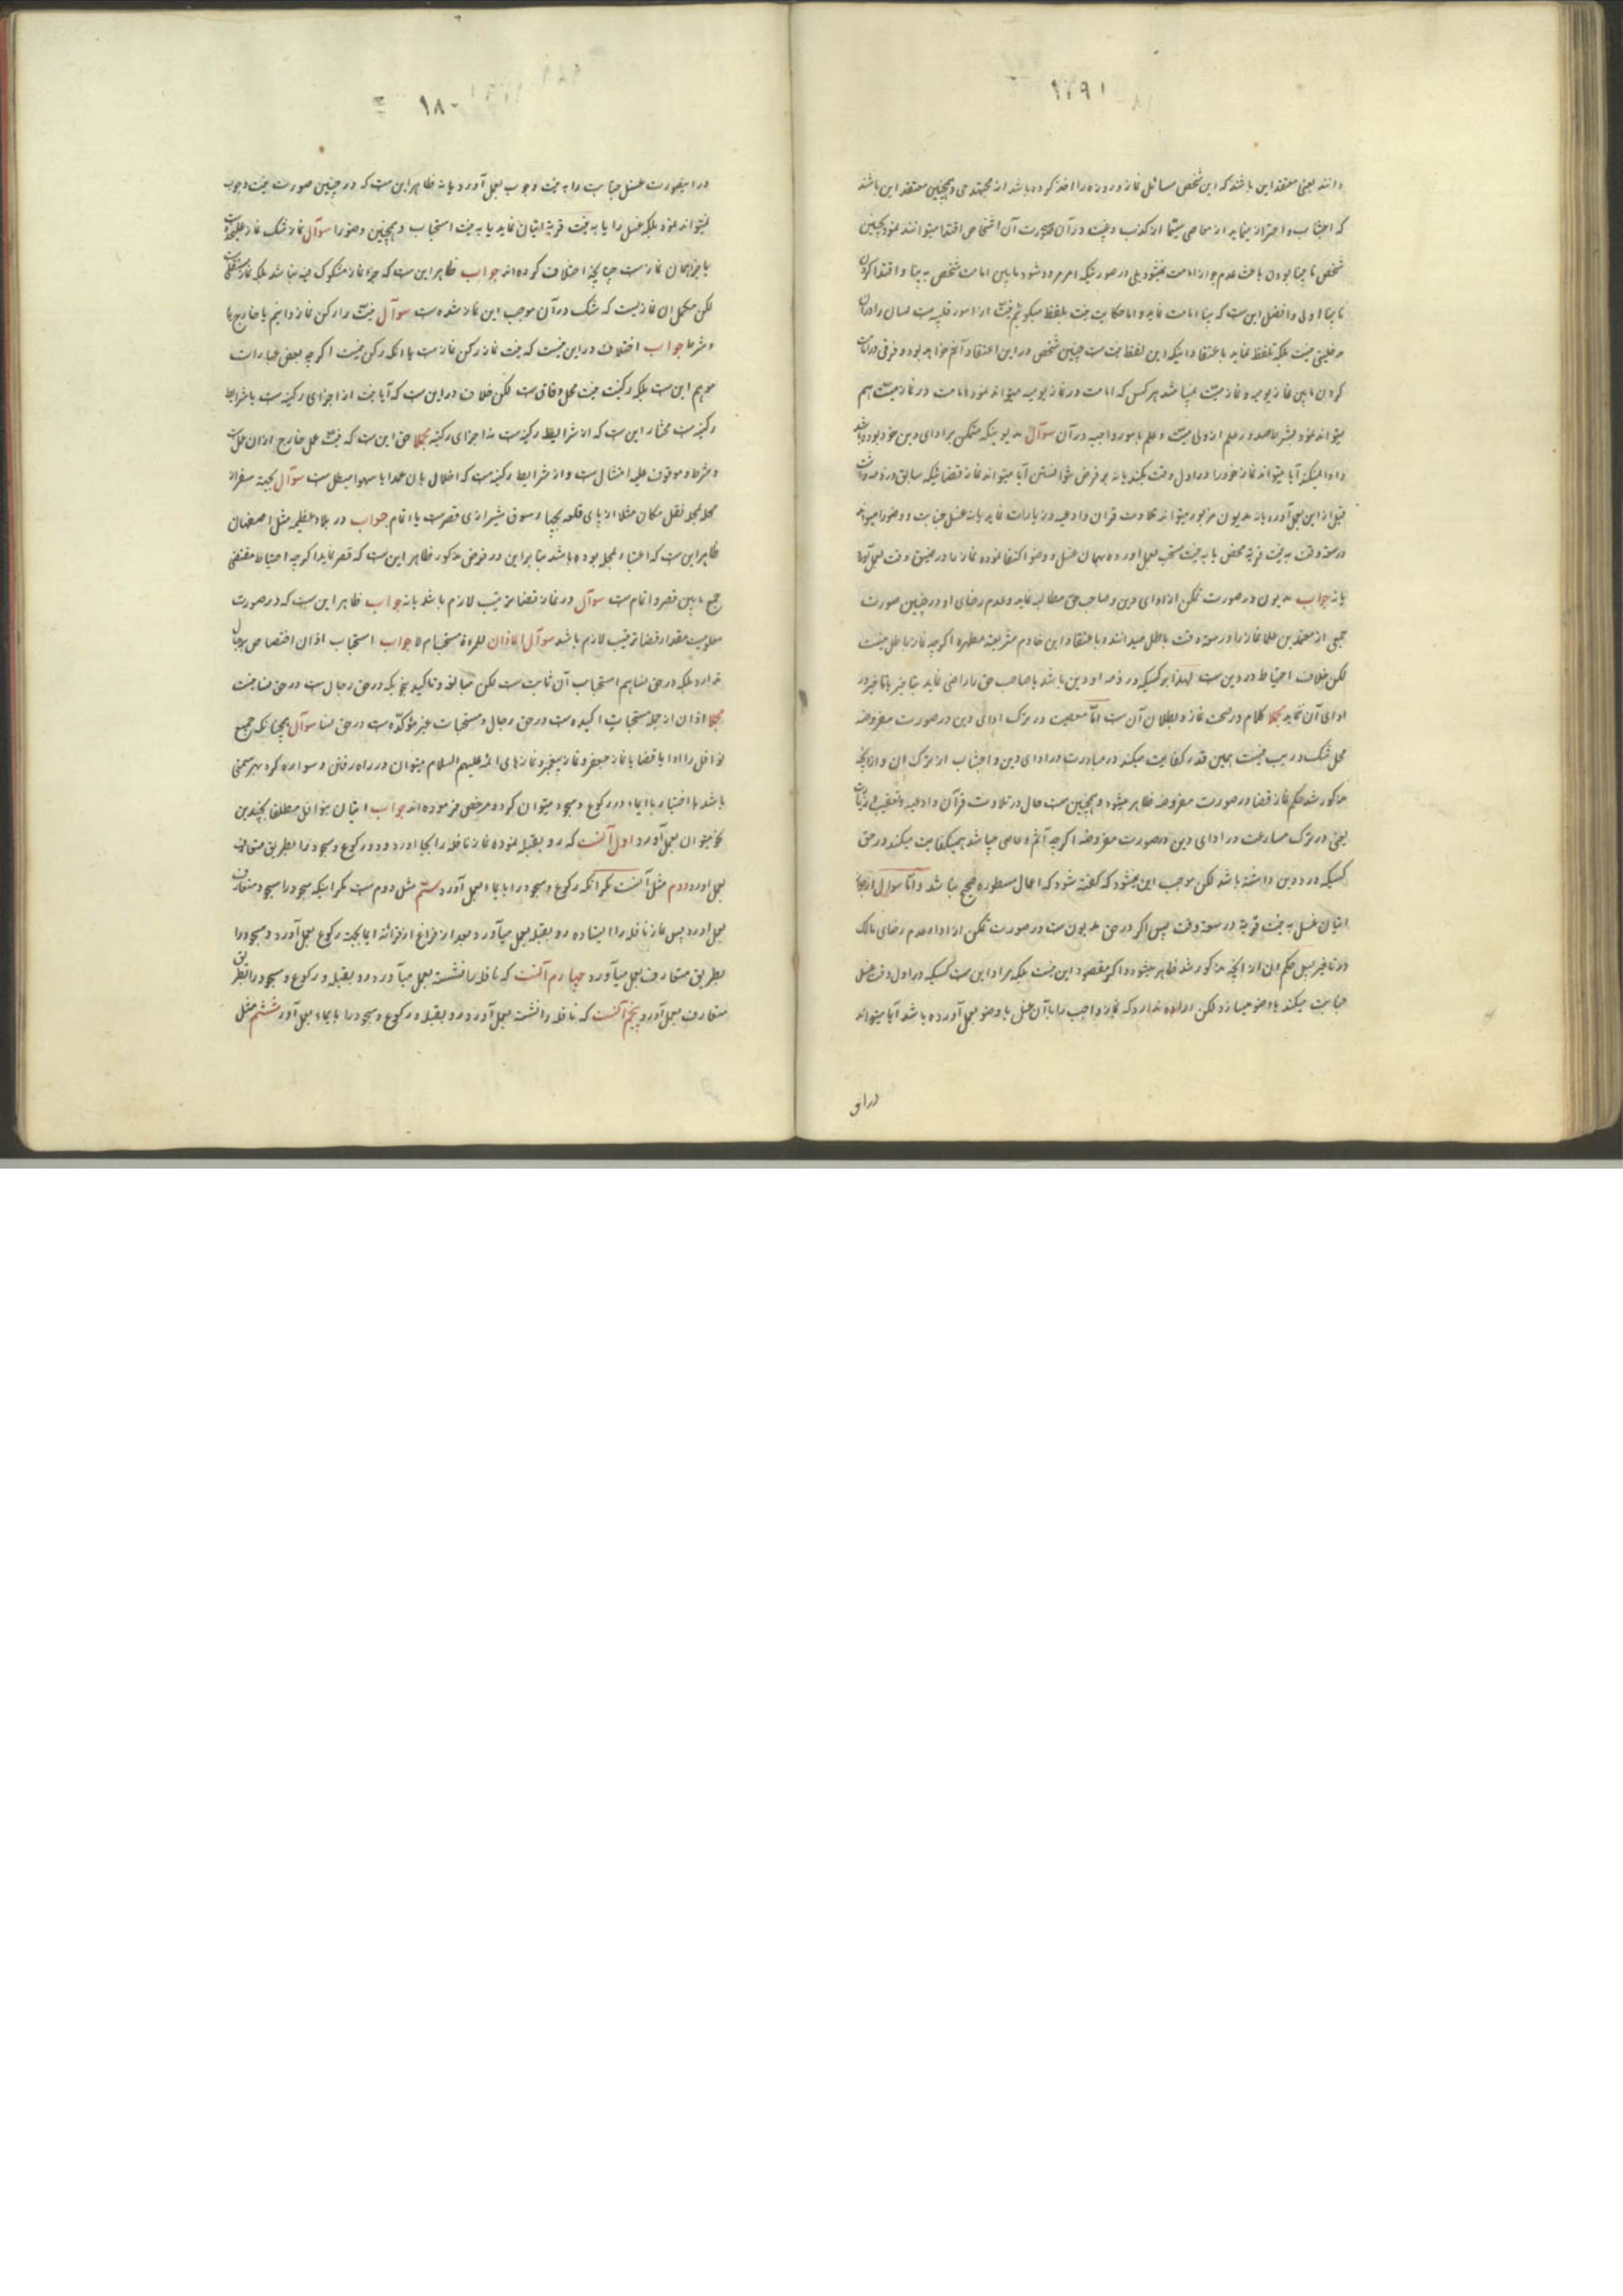 ۱۷۹۱
دانند یعنی معتقد این باشند که این شخص مسائل نماز و روزه را اخذ کرده باشد از مجتهد حی و همچنین معتقد این باشند
که اجتناب و احتراز مینماید از معاصی سیما از کذب و غیبت در آن صورت آن اشخاص اقتدا میتوانند نمود و همچنین
شخص نابینا بودن باعث عدم جواز امامت نمیشود بلی در صورتیکه امر مردد شود مابین امامت شخص بینا و اقتدا کردن
نابینا اولی و افضل این است که بینا امامت نماید و اما حکایت نیت بلفظ میگوئیم نیت از امور قلبیه است لسان را در آن
مدخلیتی نیست بلکه تلفظ نماید باعتقاد اینکه این لفظ نیت است چنین شخص در این اعتقاد آثم خواهد بود و فرقی در امامت
کردن مابین نماز یومیه و نماز میت نمیباشد هر کس که امامت در نماز یومیه میتواند نمود امامت در نماز میت هم
میتواند نمود بشرط صدور علم از ولی میت و علم بامور واجبه در آن سوآل مدیونیکه متمکن بر ادای دین خود بوده باشد
و ادا نمیکند آیا میتواند نماز خود را در اول وقت بکند یا نه بر فرض نتوانستن آیا میتواند نماز قضائیکه سابق در ذمه داشت
قبل از این بعمل آورد یا نه مدیون مزبور میتواند تلاوت قرآن و ادعیه و زیارات نماید یا نه غسل جنابت و وضو را میتواند
در سعه وقت به نیت قربة محض یا به نیت مستحب بعمل اورده بهمان غسل و وضو اکتفا نموده نماز را در ضیق وقت بعمل آورد
یا نه جواب مدیون در صورت تمکن از ادای دین و صاحب حق مطالبه نماید و عدم رضای او در چنین صورت
جمعی از معتمدین علما نماز را در سعه وقت باطل میدانند و باعتقاد این خادم شریعت مطهره اگرچه نماز باطل نیست
لکن خلاف احتیاط در دین است لهذا بر کسیکه در ذمه او دین باشد یا صاحب حق را راضی نماید بتاخیر یا تاخیر در
ادای آن نماید مجملا کلام در صحت نماز و بطلان آن است امّا معصیت در ترک ادای دین در صورت مفروضه
محل شک و ریب نیست همین قدر کفایت میکند در مبادرت در ادای دین و اجتناب از ترک ان و از آنچه
مذکور شد حکم نماز قضا در صورت مفروضه ظاهر میشود و همچنین است حال در تلاوت قرآن و ادعیه و تعقیب و زیارات
یعنی در ترک مسارعت در ادای دین در صورت مفروضه اگرچه آثم و عاصی میباشد همین کفایت میکند در حق
کسیکه درد دین داشته باشد لکن موجب این نمیشود که گفته شود که اعمال مسطوره صحیح نباشد و امّا سوآل از جواز
اتیان غسل به نیت قربة در سعه وقت پس اگر در حق مدیون است در صورت تمکن از ادا و عدم رضای مالک
در تاخیر پس حکم ان از آنچه مذکور شد ظاهر میشود و اگر مقصود این نیست بلکه مراد این است کسیکه در اول وقت غسل
جنابت میکند یا وضو میسازد لکن اراده ندارد که نماز واجب را با آن غسل یا وضو بعمل آورده باشد آیا میتواند
در این
۱۸۰
در اینصورت غسل جنابت را به نیت وجوب بعمل آورد یا نه ظاهر این است که در چنین صورت نیت وجوب
نمیتواند نمود بلکه غسل را یا به نیت قربة اتیان نماید یا به نیت استحباب و همچنین وضو را سوآل نماز شک نماز علیحده است
یا جزء همان نماز است چنانچه اختلاف کرده‌اند جواب ظاهر این است که جزء نماز مشکوک فیه نباشد بلکه نماز مستقلی است
لکن مکمل ان نماز است که شک در آن موجب این نماز شده است سوآل نیت را رکن نماز دانیم یا خارج یا
شرط جواب اختلاف در این نیست که نیت نماز رکن نماز است یا انکه رکن نیست اگرچه بعض عبارات
موهم این است بلکه رکنیت نیت محل وفاق است لکن خلاف در این است که آیا نیت از اجزای رکنیه است یا شرایط
رکنیه است مختار این است که از شرایط رکنیه است نه اجزای رکنیه مجملا حق این است که نیت عمل خارج از ان عمل است
و شرط و موقوف علیه امتثال است و از شرایط رکنیه است که اخلال بان عمدا یا سهوا مبطل است سوآل بجهة سفر از
محله بمحله نقل مکان مثلا از پای قلعه بیجا و سوق شیرازی قصر است یا اتمام جواب در بلاد عظیمه مثل اصفهان
ظاهر این است که اعتبار بمحله بوده باشد بنا بر این در فرض مذکور ظاهر این است که قصر نماید اگرچه احتیاط مقتضی
جمع مابین قصر و اتمام است سوآل در نماز قضا ترتیب لازم باشد یا نه جواب ظاهر این است که در صورت
معلومیت مقدار قضا ترتیب لازم باشد سوآل الاذان للمرءة مستحب ام لا جواب استحباب اذان اختصاص برجال
ندارد بلکه در حق نساء هم استحباب آن ثابت است لکن مبالغه و تاکید بنحویکه در حق رجال است در حق نساء نیست
مجملا اذان از جمله مستحبات اکیده است در حق رجال و مستحبات غیر مؤکدّه است در حق نسا سوآل همچنانکه جمیع
نوافل را ادا یا قضا یا نماز جعفر و نماز پیغمبر و نمازهای ائمه علیهم السلام میتوان در راه رفتن و سواره کرد بهر سمتی
باشد با اختیار با ایماء در رکوع و سجود میتوان کرد و مرخص فرموده‌اند جواب اتیان بنوافل مطلقا بچندین
نحو میتوان بعمل آورد اول آنست که رو بقبله نموده نماز نافله را بجا اورد و در رکوع و سجود را بطریق متعارف
بعمل اورد دوم مثل آنست مگر انکه رکوع و سجود را با ایماء بعمل آورد سیّم مثل دوم است مگر اینکه سجود را سجود متعارف
بعمل اورد پس نماز نافله را ایستاده رو بقبله بعمل میآورد و بعد از فراغ از قرائة ایما بجهة رکوع بعمل آورد و سجود را
بطریق متعارف بعمل میآورد چهارم آنست که نافله را نشسته بعمل میآورد رو بقبله و رکوع و سجود را بطریق
متعارف بعمل آورد پنجم آنست که نافله را نشسته بعمل آورد رو بقبله و رکوع و سجود را با ایماء بعمل آورد ششم مثل